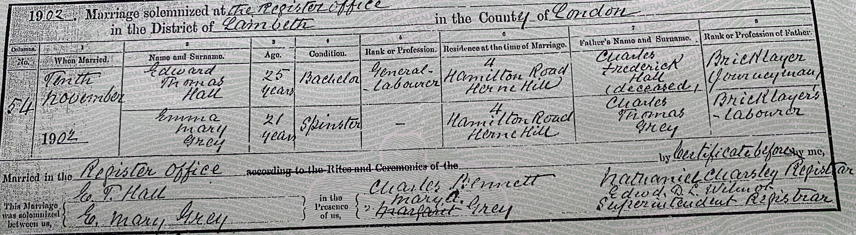 1902. Marriage solemnized at the Register Office
in the District of Lambeth in the County of London
Columns. 1 2 3 4 5 6 7 8
No. When Married. Name and Surname. Age. Condition. Rank or Profession. Residence at the time of Marriage. Father's Name and Surname. Rank or Profession of Father.
54 Tenth November 1902
Edward Thomas Hall 25 years Bachelor General-Labourer 4 Hamilton Road Herne Hill Charles Frederick Hall (deceased) Bricklayer (Journeyman)
Emma Mary Grey 21 years Spinster — 4 Hamilton Road Herne Hill Charles Thomas Grey Bricklayer's-Labourer
Married in the Register Office according to the Rites and Ceremonies of the by Certificate before by me,
This Marriage was solemnized between us, { E. T. Hall
E. Mary Grey } in the Presence of us, { Charles Bennett
Mary A.
Margaret Grey } Nathaniel Charsley Registrar
Edwd. Wilmot
Superintendent Registrar